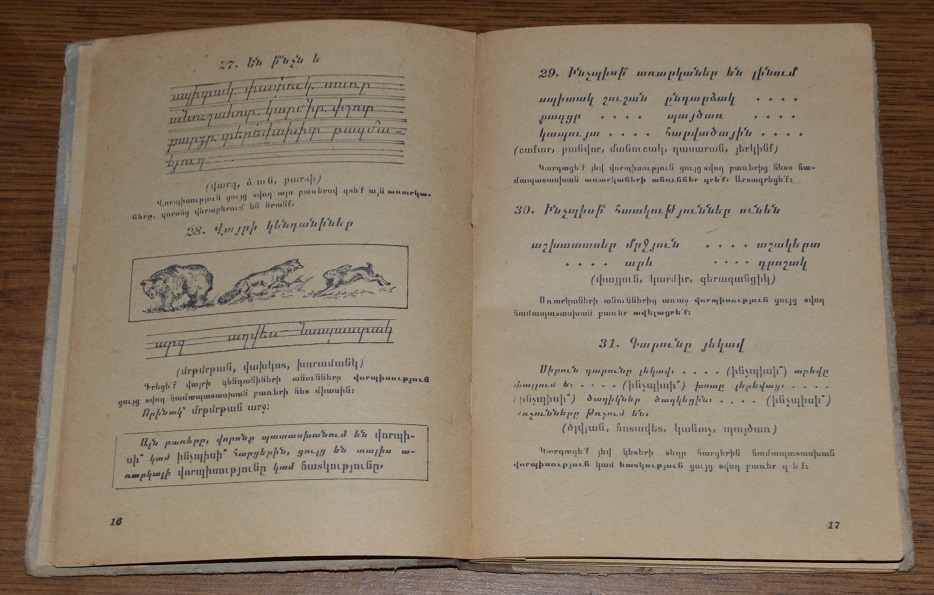 27. Են ի՞նչն է
սպիտակ, փափուկ, սառը
անուշահոտ, կարմիր, փշոտ
քաղցր, տերեվախիտ, բազմա-
ճյուղ
(վարդ, ձյուն, բարտի)
Վորպիսություն ցույց տվող այս բառերով գտե՛ք այն առարկա-
ները, վորոնց վերաբերում են նրանք։
28. Վայրի կենդանիներ
արջ աղվես նապաստակ
(մրթմրթան, վախկոտ, խորամանկ)
Գրեցե՛ք վայրի կենդանիների անունները վորպիսություն
ցույց տվող համապատասխան բառերի հետ միասին։
Որինակ՝ մրթմրթան արջ։
Այն բառերը, վորոնք պատասխանում են վորպի-
սի՞ կամ ինչպիսի՞ հարցերին, ցույց են տալիս ա-
ռարկայի վորպիսությունը կամ հատկությունը։
16
29. Ինչպիսի՞ առարկաներ են լինում
սպիտակ շուշան ընդարձակ . . . .
քաղցր . . . . պայծառ . . . .
կապույտ . . . . հարվածային . . . .
(շաքար, բանվոր, մանուշակ, դասարան, յերկինք)
Կարդացե՛ք յեվ վորպիսություն ցույց տվող բառերից հետո հա-
մապատասխան առարկաների անուններ գրե՛ք։ Արտագրեցե՛ք։
30. Ինչպիսի՞ հատկություններ ունեն
աշխատասեր մրջյուն . . . . աշակերտ
. . . . արև . . . . դրոշակ
(փայլուն, կարմիր, գերազանցիկ)
Առարկաների անուններից առաջ վորպիսություն ցույց տվող
համապատասխան բառեր ավելացրե՛ք։
31. Գարունը յեկավ
Սիրուն գարունը յեկավ. . . . . (ինչպիսի՞) արեվը
փայլում ե. . . . . (ինչպիսի՞) խոտը յելյեվաց։ . . . .
(ինչպիսի՞) ծաղիկներ ծաղկեցին։ . . . . (ինչպիսի՞)
թռչունները թռչում են։
(ծլվլան, հոտավետ, կանաչ, պայծառ)
Կարդացե՛ք յեվ կետերի տեղը հարցերին համապատասխան
վորպիսություն կամ հատկություն ցույց տվող բառեր գրե՛ք։
17